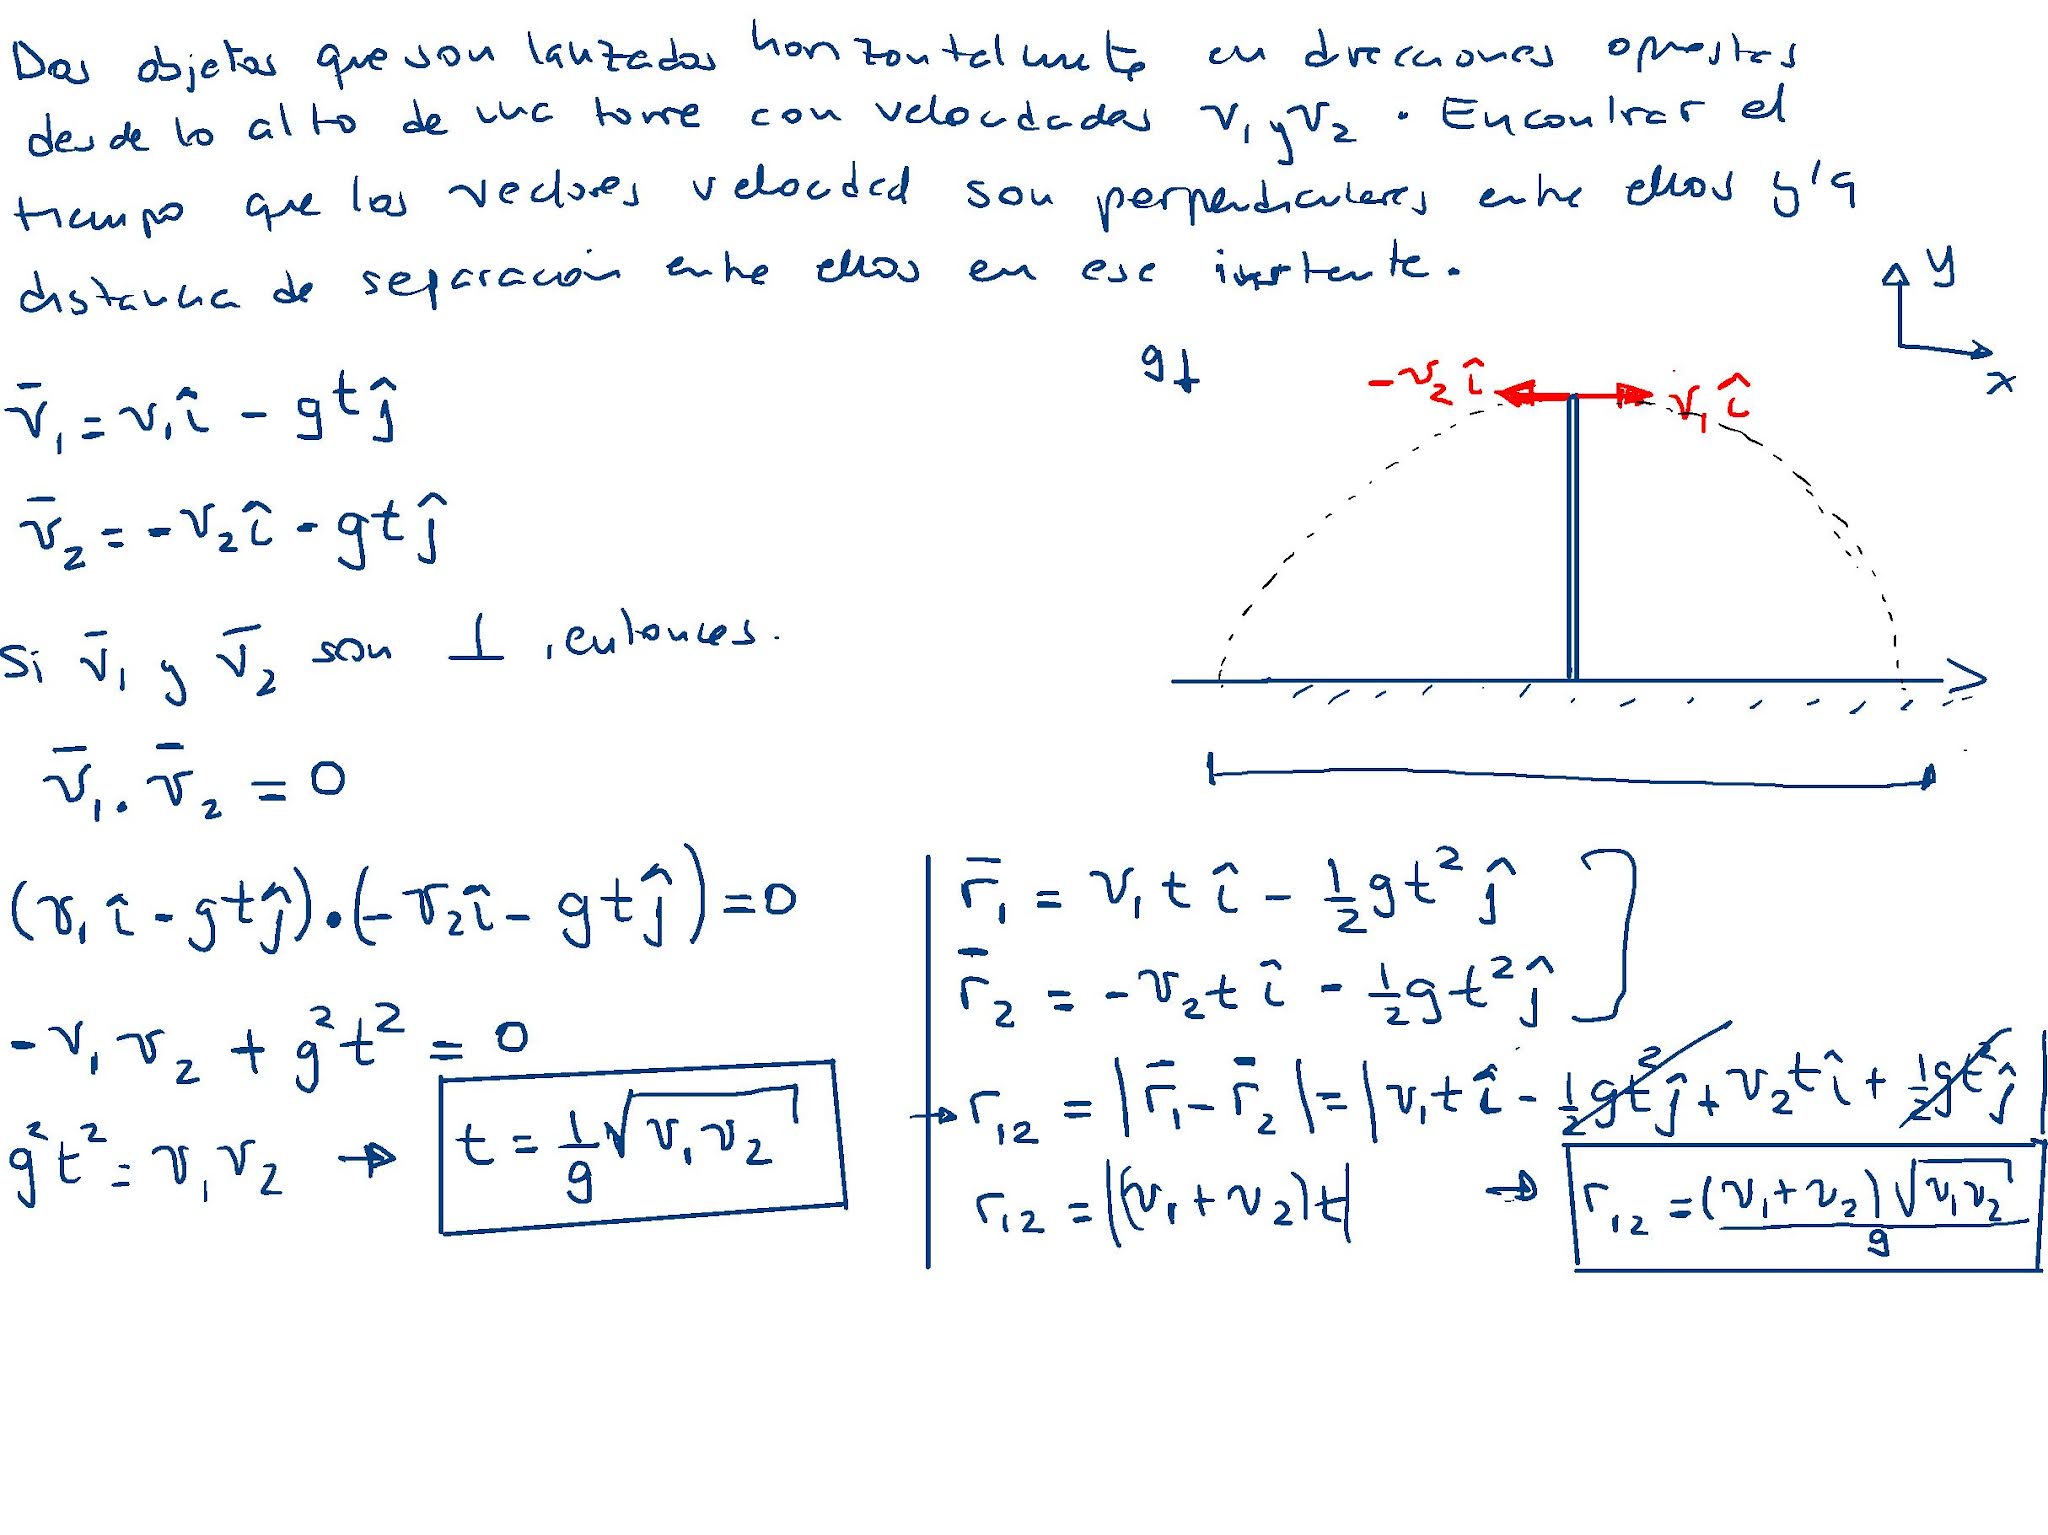 Dos objetos que son lanzados horizontalmente en direcciones opuestas
desde lo alto de una torre con velocidades v₁ y v₂ . Encontrar el
tiempo que los vectores velocidad son perpendiculares entre ellos y la
distancia de separación entre ellos en ese instante.
y
x
g↓
-v₂ î
v₁ î
v̄₁ = v₁ î - g t ĵ
v̄₂ = -v₂ î - g t ĵ
Si v̄₁ y v̄₂ son ⊥ , entonces.
v̄₁ . v̄₂ = 0
(v₁ î - g t ĵ) • (-v₂ î - g t ĵ) = 0
-v₁ v₂ + g² t² = 0
g² t² = v₁ v₂ → t = 1/g √v₁ v₂
r̄₁ = v₁ t î - 1/2 g t² ĵ
r̄₂ = -v₂ t î - 1/2 g t² ĵ
→ r₁₂ = | r̄₁ - r̄₂ | = | v₁ t î - 1/2 g t² ĵ + v₂ t î + 1/2 g t² ĵ |
r₁₂ = |(v₁ + v₂) t| → r₁₂ = (v₁ + v₂) √v₁ v₂ / g